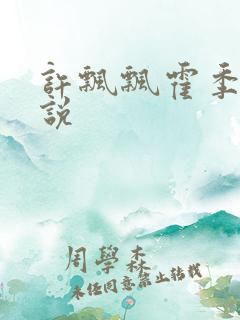 許飄飄霍季
說
周學森
未经同意禁止转载